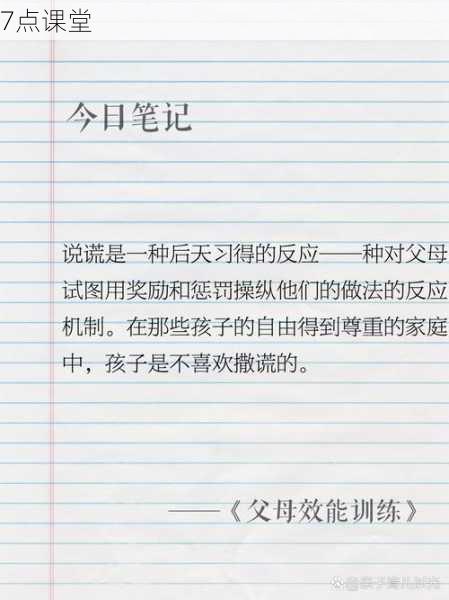 7点课堂
今日笔记
说谎是一种后天习得的反应——种对父母
试图用奖励和惩罚操纵他们的做法的反应
机制。在那些孩子的自由得到尊重的家庭
中，孩子是不喜欢撒谎的。
——《父母效能训练》